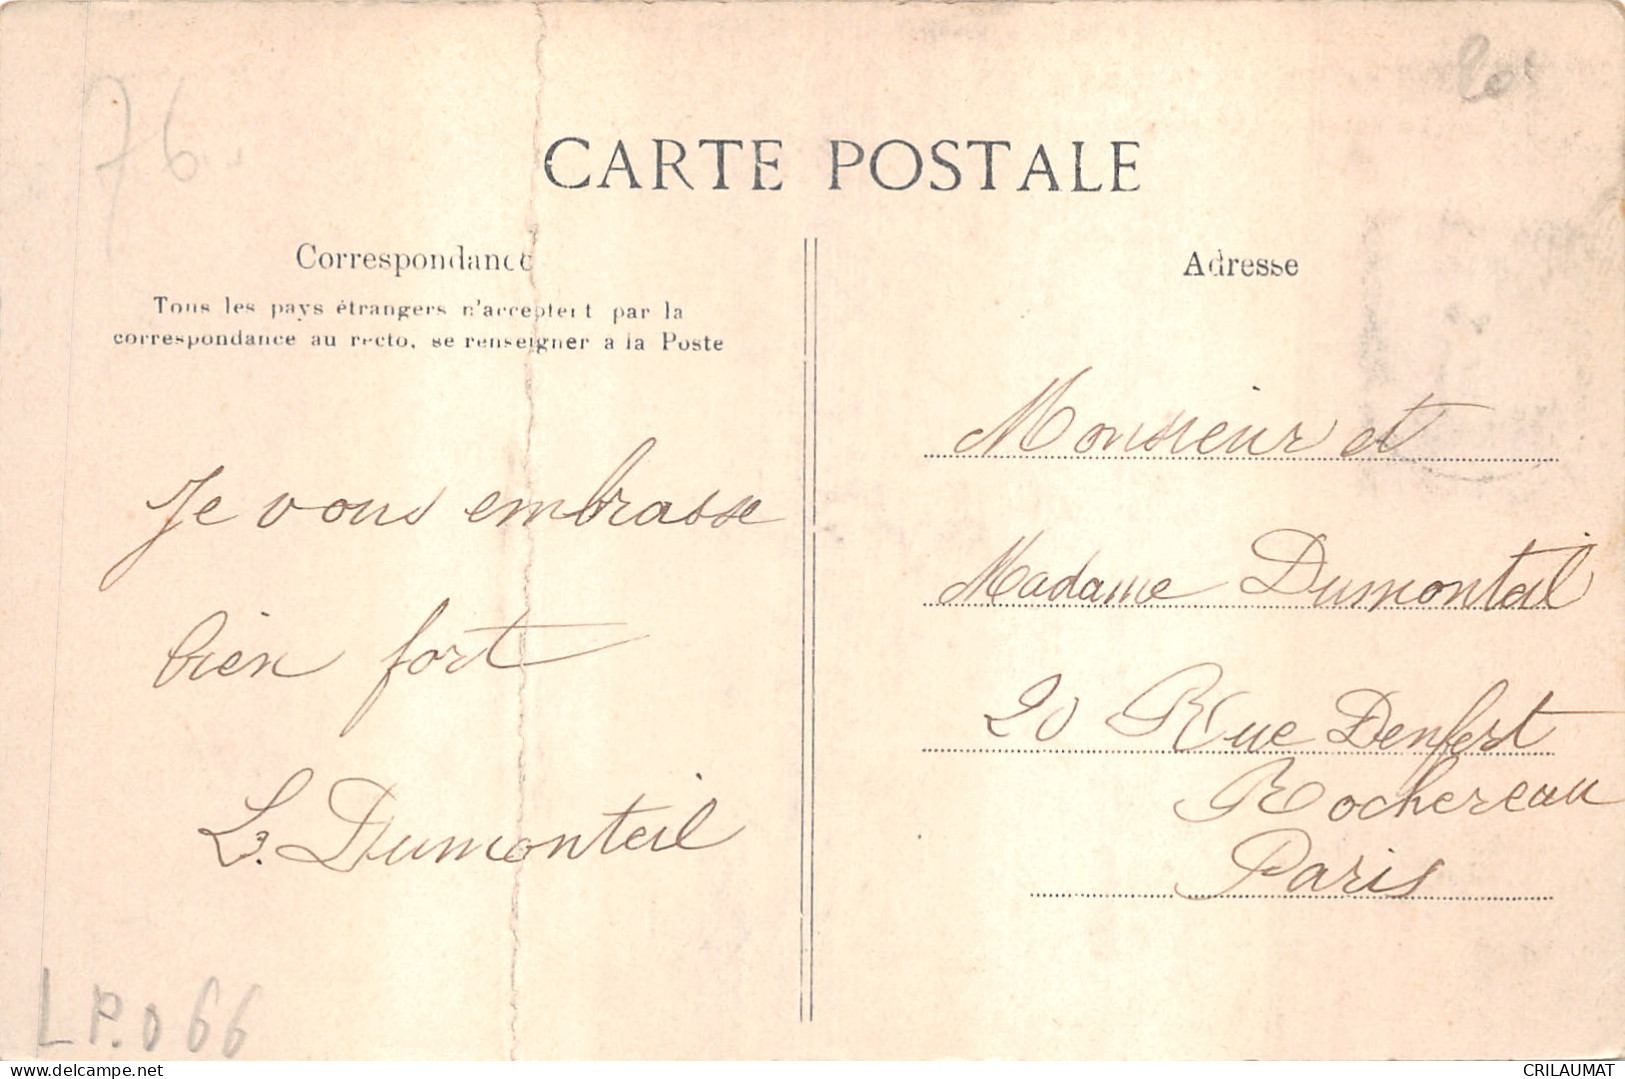 76
20
CARTE POSTALE
Correspondance
Tous les pays étrangers n'acceptent par la
correspondance au recto, se renseigner a la Poste
Je vous embrasse
bien fort
L. Dumonteil
Adresse
Monsieur et
Madame Dumonteil
20 Rue Denfert
Rochereau
Paris
LP.D66
delcampe.net
CRILAUMAT